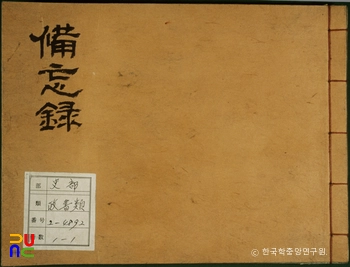 備忘録
部 史部
類 政書類
番号 2-4892
冊数 1-1
© 한국학중앙연구원